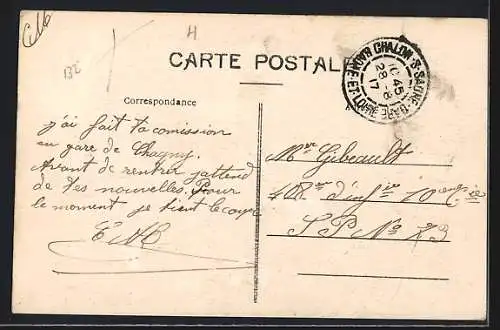 C16
132
H
CARTE POSTALE
CHALON-S-SAONE-GARE
SAONE-ET-LOIRE
10 45
28 -8
17
Correspondance
j'ai fait ta comission
en gare de Chagny.
Avant de rentrer j'attend
de tes nouvelles. Pour
le moment je tient le coup
Mr Gibeault
408me d'inf ie 10 em Cie
S P No 23